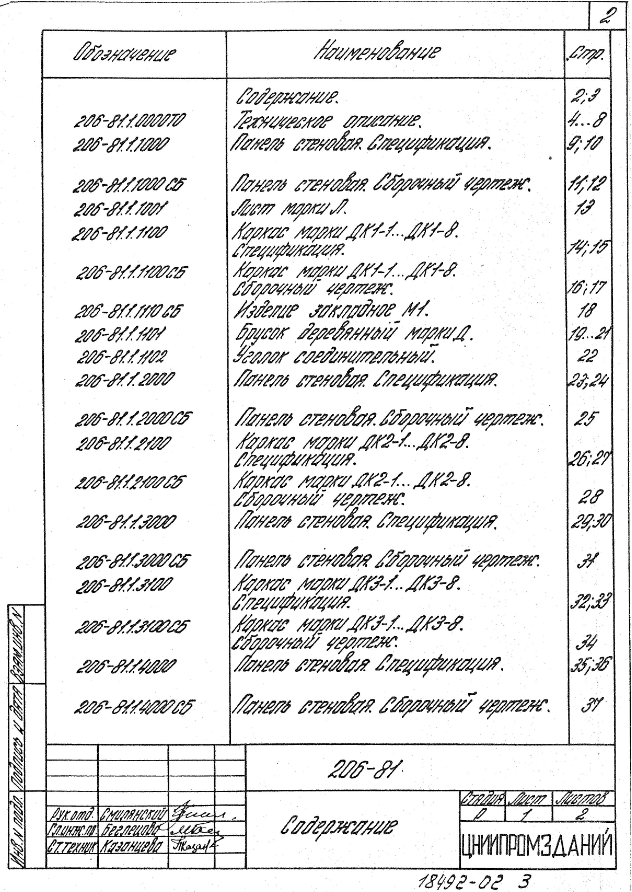 2
Обозначение Наименование Стр.
Содержание. 2;3
206-81.1.0000ТО Техническое описание. 4...8
206-81.1.1000 Панель стеновая. Спецификация. 9;10
206-81.1.1000 СБ Панель стеновая. Сборочный чертеж. 11,12
206-81.1.1001 Лист марки Л. 13
206-81.1.1100 Каркас марки ДК1-1... ДК1-8.
Спецификация. 14;15
206-81.1.1100 СБ Каркас марки ДК1-1... ДК1-8.
Сборочный чертеж. 16;17
206-81.1.1110 СБ Изделие закладное М1. 18
206-81.1.1101 Брусок деревянный марки Д. 19...21
206-81.1.1102 Уголок соединительный. 22
206-81.1.2000 Панель стеновая. Спецификация. 23;24
206-81.1.2000 СБ Панель стеновая. Сборочный чертеж. 25
206-81.1.2100 Каркас марки ДК2-1... ДК2-8.
Спецификация. 26;27
206-81.1.2100 СБ Каркас марки ДК2-1... ДК2-8.
Сборочный чертеж. 28
206-81.1.3000 Панель стеновая. Спецификация. 29;30
206-81.1.3000 СБ Панель стеновая. Сборочный чертеж. 31
206-81.1.3100 Каркас марки ДК3-1... ДК3-8.
Спецификация. 32;33
206-81.1.3100 СБ Каркас марки ДК3-1... ДК3-8.
Сборочный чертеж. 34
206-81.1.4000 Панель стеновая. Спецификация. 35;36
206-81.1.4000 СБ Панель стеновая. Сборочный чертеж. 37
Инв. N подл. Подпись и дата Взам.инв. N
206-81
Рук.отд. Смилянский
Гл.инж.пр. Беглецова
Ст.техник Казанцева
Содержание
Стадия Лист Листов
Р 1 2
ЦНИИПРОМЗДАНИЙ
18492-02 3